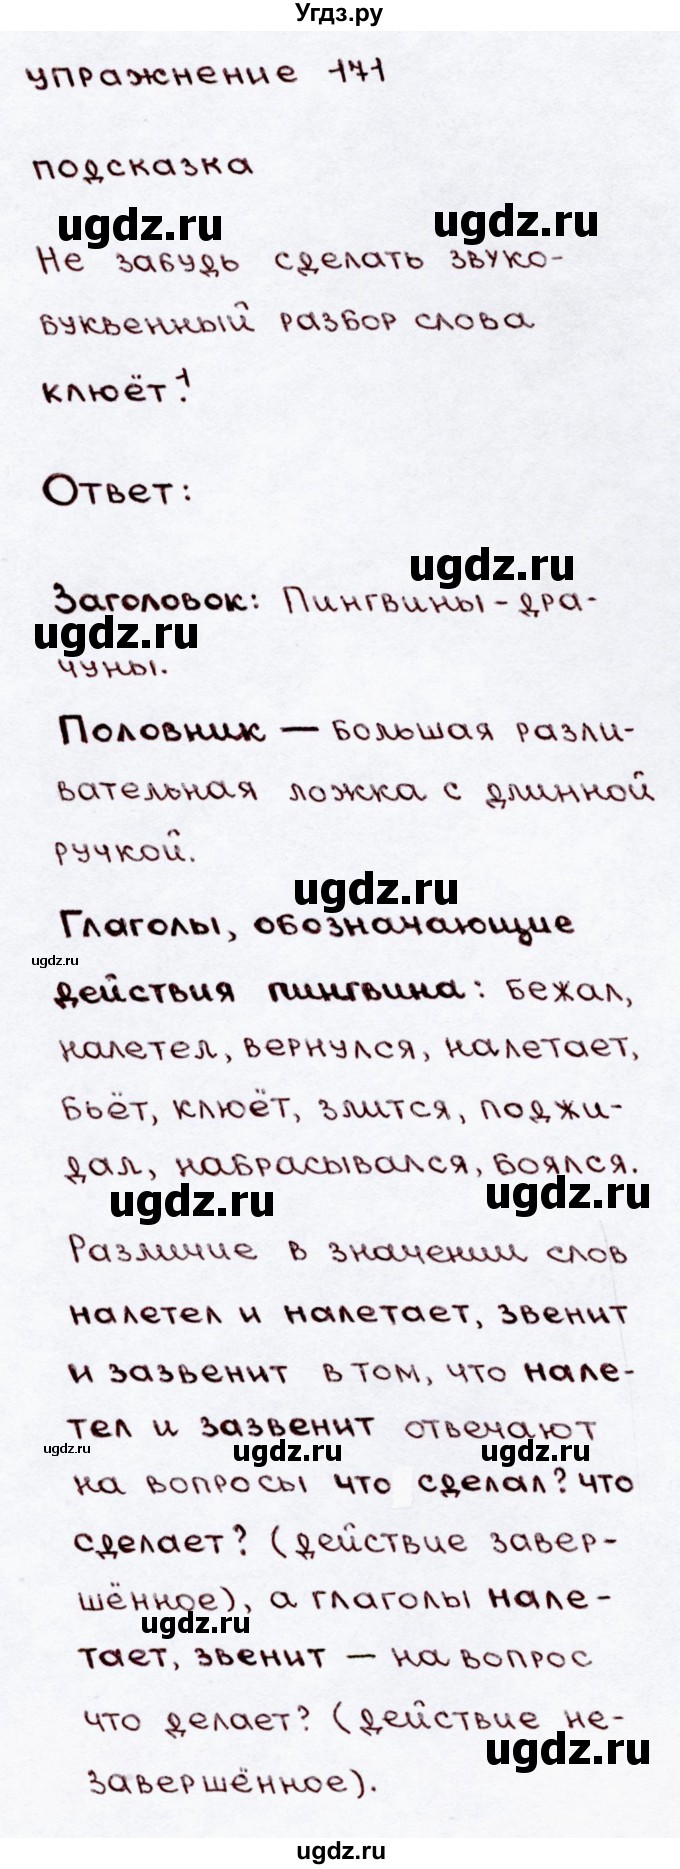 Угдз.ру
упражнение 171
подсказка
ugdz.ru ugdz.ru
Не забудь сделать звуко-
буквенный разбор слова
клюёт!¹
Ответ:
ugdz.ru
Заголовок: Пингвины-дра-
ugdz.ru
чуны.
Половник — большая разли-
вательная ложка с длинной
ручкой.
ugdz.ru
Глаголы, обозначающие
ugdz.ru
действия пингвина: бежал,
налетел, вернулся, налетает,
бьёт, клюёт, злится, поджи-
дал, набрасывался, боялся.
ugdz.ru ugdz.ru
Различие в значении слов
налетел и налетает, звенит
и зазвенит в том, что нале-
тел и зазвенит отвечают
ugdz.ru ugdz.ru ugdz.ru
на вопросы что сделал? что
сделает? (действие завер-
шённое), а глаголы нале-
ugdz.ru
тает, звенит — на вопрос
что делает? (действие не-
ugdz.ru
завершённое).
ugdz.ru